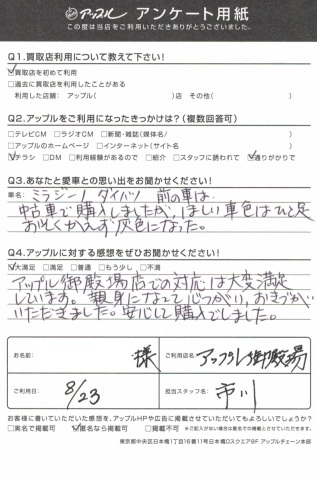 アップル アンケート用紙
この度は当店をご利用いただきありがとうございました。
Q1.買取店利用について教えて下さい!
☑買取店を初めて利用
□過去に買取店を利用したことがある
利用した店舗: アップル( )店 その他( )
Q2.アップルをご利用になったきっかけは?(複数回答可)
□テレビCM □ラジオCM □新聞・雑誌(媒体名/ )
□アップルのホームページ □インターネット(サイト名 )
☑チラシ □DM □利用経験があるので □紹介 □スタッフに誘われて ☑通りがかりで
Q3.あなたと愛車との思い出をお聞かせください!
車名: ミラジーノ ダイハツ 前の車は
中古車で購入しましたが、ほしい車色はひと足
おそくかえず灰色になった。
Q4.アップルに対する感想をぜひお聞かせください!
☑大満足 □満足 □普通 □もう少し □不満
アップル御殿場店での対応は大変満足
しています。親身になって心づかい、おきづかい
いただきました。安心して購入でしました。
お名前: 様 ご利用店名: アップル御殿場
ご利用日: 8/23 担当スタッフ名: 市川
お客様に書いていただいた感想を、アップルHPや広告に掲載させていただいてもよろしいでしょうか?
□実名で掲載可 ☑匿名なら掲載可 □掲載不可 ※ご記入がない場合は匿名での掲載とさせていただきます。
東京都中央区日本橋1丁目16番11号日本橋Dスクエア9F アップルチェーン本部